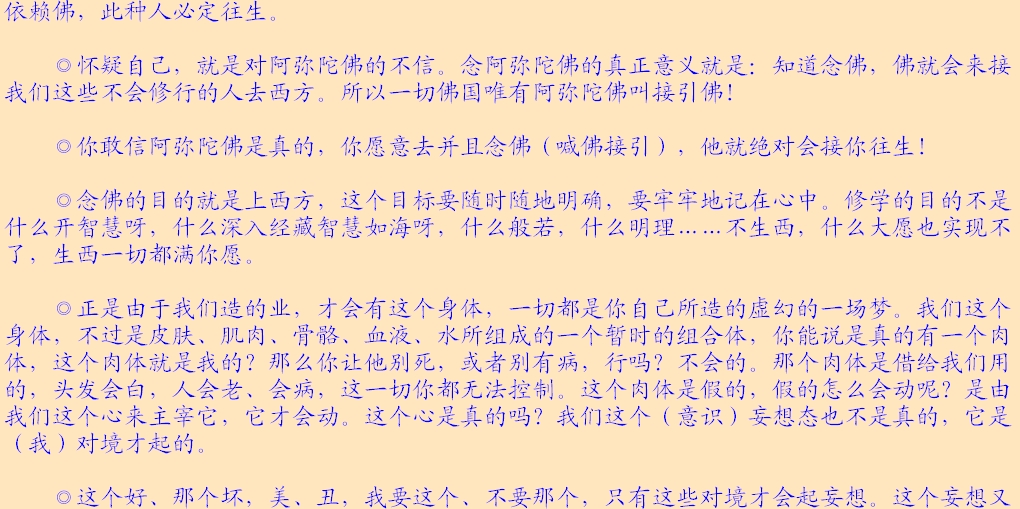 依赖佛，此种人必定往生。
◎怀疑自己，就是对阿弥陀佛的不信。念阿弥陀佛的真正意义就是：知道念佛，佛就会来接
我们这些不会修行的人去西方。所以一切佛国唯有阿弥陀佛叫接引佛！
◎你敢信阿弥陀佛是真的，你愿意去并且念佛（喊佛接引），他就绝对会接你往生！
◎念佛的目的就是上西方，这个目标要随时随地明确，要牢牢地记在心中。修学的目的不是
什么开智慧呀，什么深入经藏智慧如海呀，什么般若，什么明理……不生西，什么大愿也实现不
了，生西一切都满你愿。
◎正是由于我们造的业，才会有这个身体，一切都是你自己所造的虚幻的一场梦。我们这个
身体，不过是皮肤、肌肉、骨骼、血液、水所组成的一个暂时的组合体，你能说是真的有一个肉
体，这个肉体就是我的？那么你让他别死，或者别有病，行吗？不会的。那个肉体是借给我们用
的，头发会白，人会老、会病，这一切你都无法控制。这个肉体是假的，假的怎么会动呢？是由
我们这个心来主宰它，它才会动。这个心是真的吗？我们这个（意识）妄想态也不是真的，它是
（我）对境才起的。
◎这个好、那个坏，美、丑，我要这个、不要那个，只有这些对境才会起妄想。这个妄想又